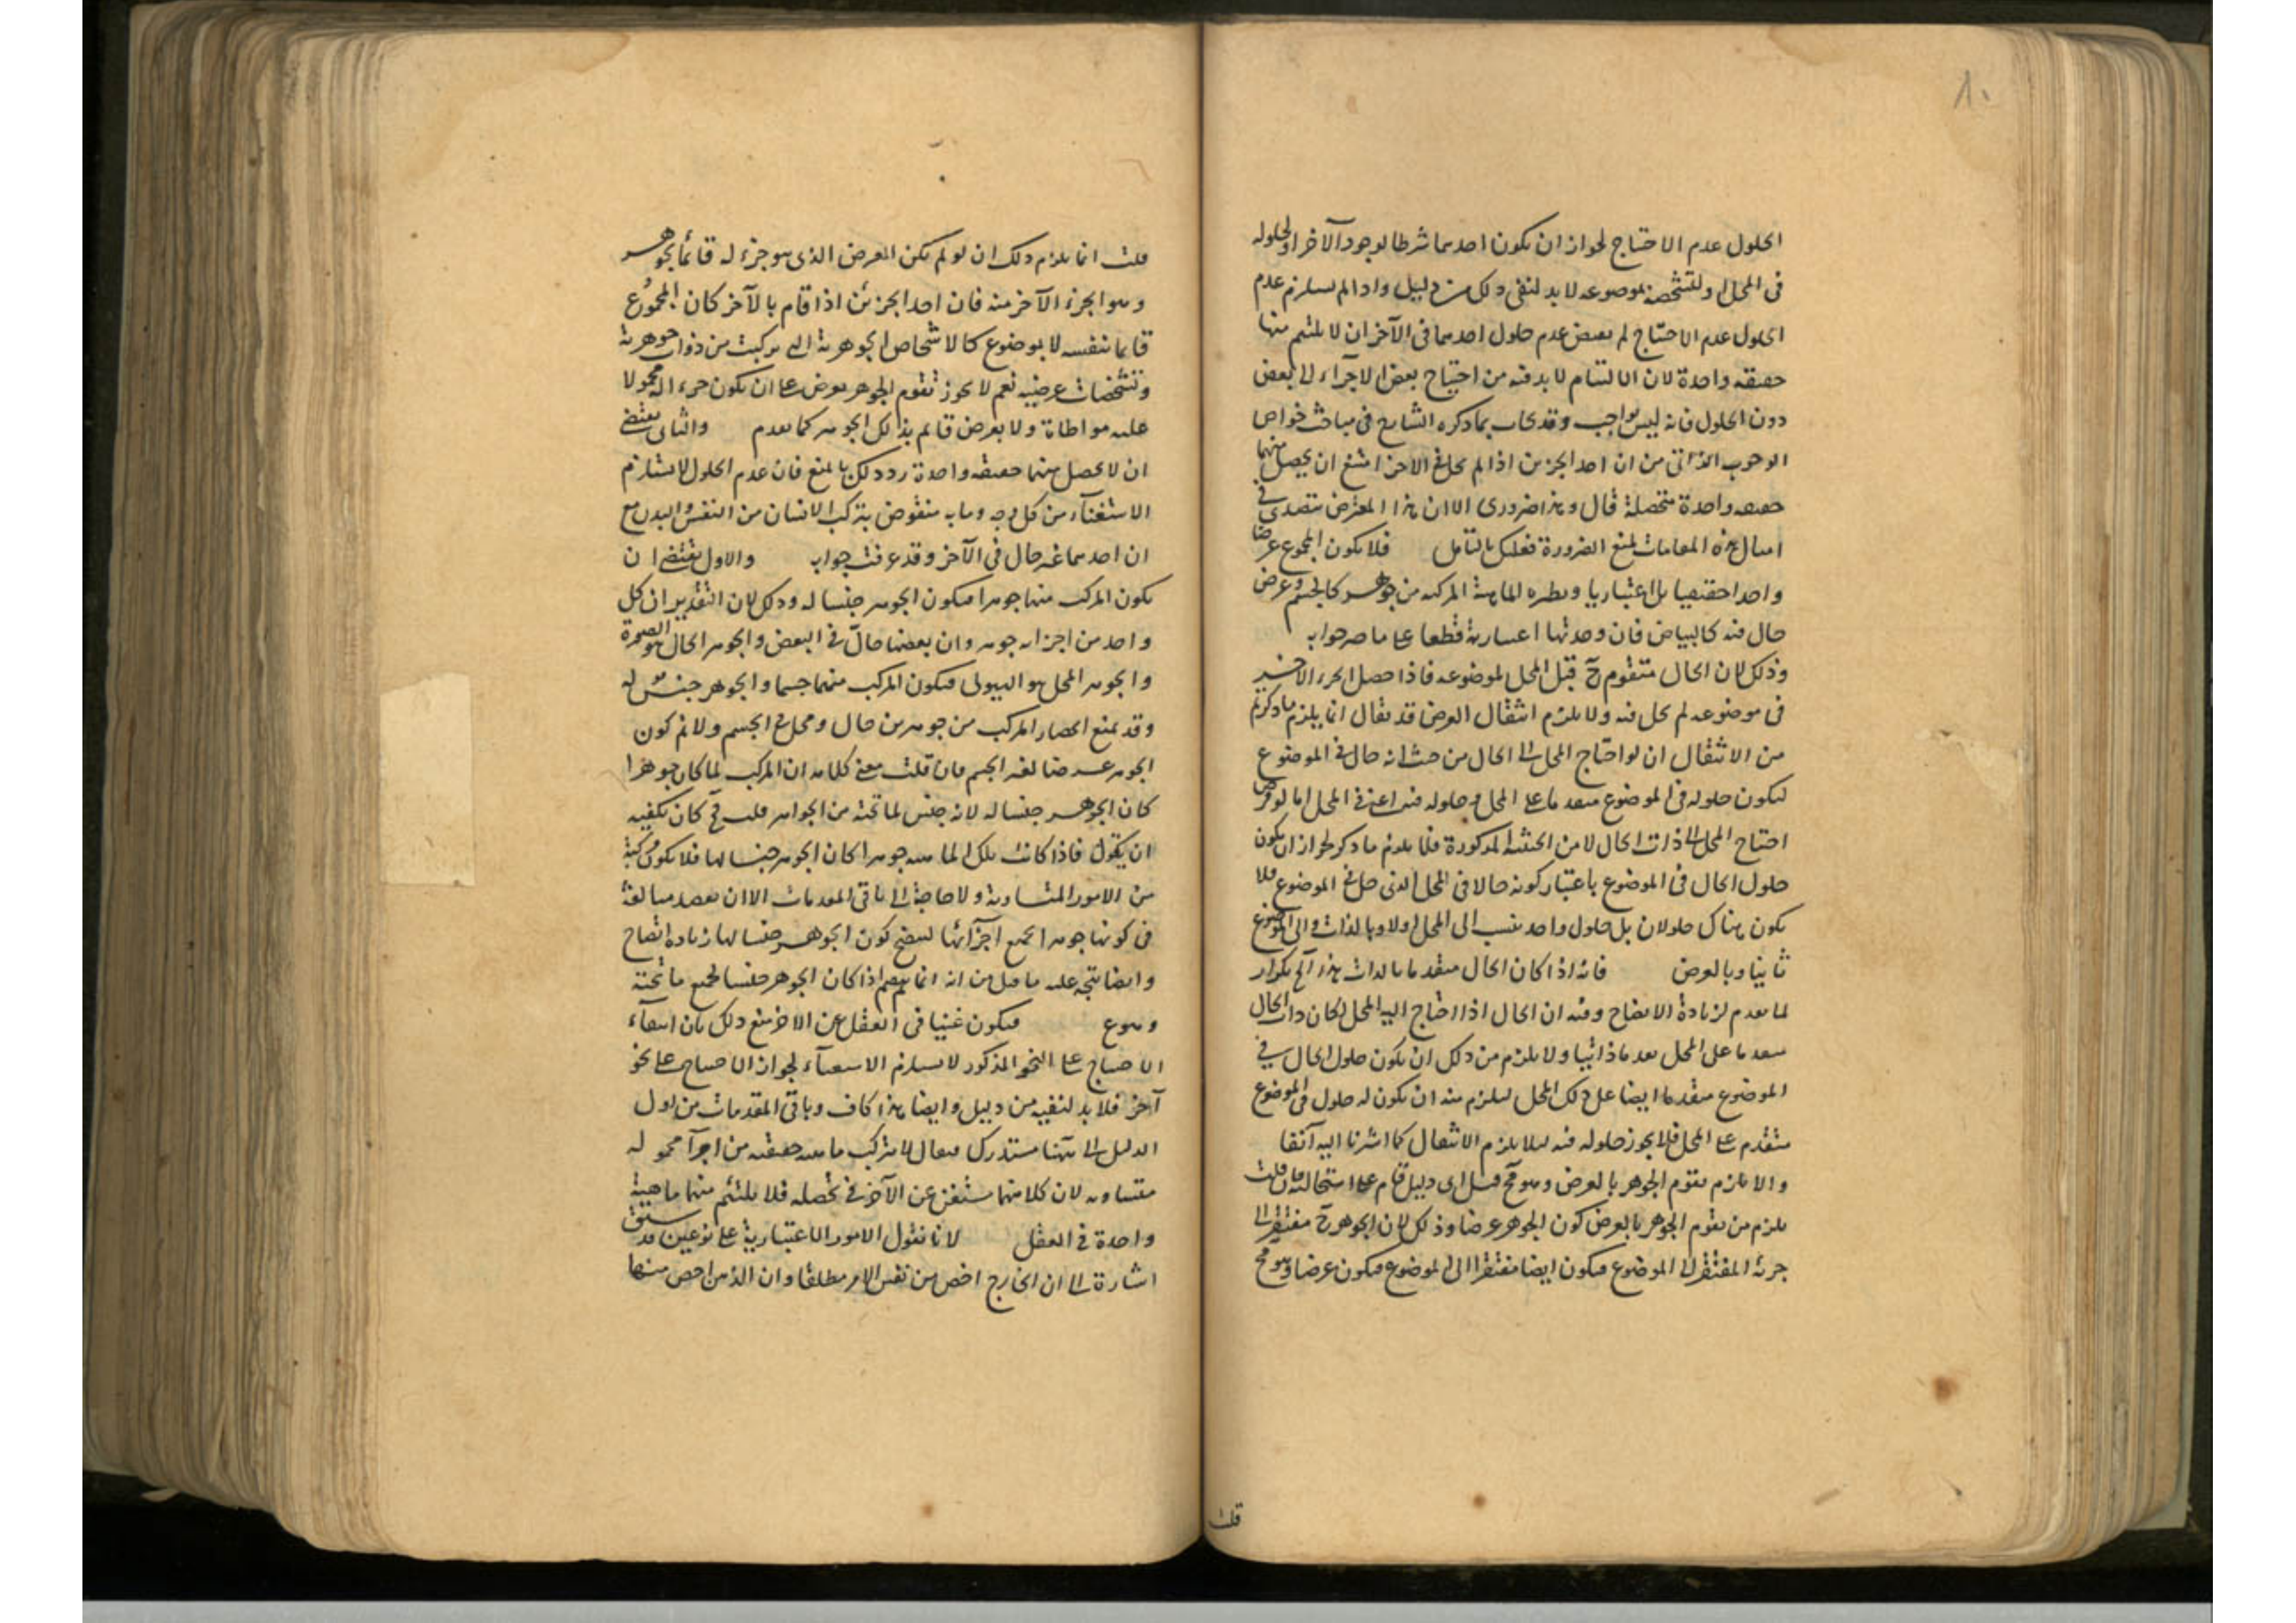 ٨٠
الحلول عدم الاحتياج لجواز ان يكون احدهما شرطا لوجود الآخر او لحلوله
فى المحل او لتشخصه بموضوعه لا بد لنفى ذلك من دليل واذا لم يستلزم عدم
الحلول عدم الاحتياج لم يقتض عدم حلول احدهما فى الآخر ان لا يلتئم منها
حقيقة واحدة لان الالتيام لا بد فيه من احتياج بعض الاجزاء الى بعض
دون الحلول فانه ليس بواجب وقد يجاب بما ذكره الشارح فى مباحث خواص
الوجوب الذاتى من ان احد الجزئين اذا لم يحل فى الاخر امتنع ان يحصل منهما
حقيقة واحدة متحصلة قال وهذا ضرورى الا ان هذا المعترض يتصدى فى
امثال هذه المقامات لمنع الضرورة فعليك بالتامل فلا يكون المجموع عرضا
واحدا حقيقيا بل اعتباريا ونظيره الماهية المركبة من جوهر كالجسم وعرض
حال فيه كالبياض فان وحدتها اعتبارية قطعا على ما صرحوا به
وذلك لان الحال متقوم ح قبل المحل لموضوعه فاذا حصل الجزء الاخير
فى موضوعه لم يحل فيه ولا يلزم انتقال العرض قد يقال انما يلزم ما ذكرتم
من الانتقال ان لو احتاج المحل الى الحال من حيث انه حال فى الموضوع
ليكون حلوله فى الموضوع متقدما على المحل وحلوله فيه اعنى فى المحل اما لو فرض
احتياج المحل الى ذات الحال لا من الحيثية المذكورة فلا يلزم ما ذكر لجواز ان يكون
حلول الحال فى الموضوع باعتبار كونه حالا فى المحل الذى حل فى الموضوع فلا
يكون هناك حلولان بل حلول واحد ينسب الى المحل اولا وبالذات والى الموضوع
ثانيا وبالعرض فانه اذا كان الحال متقدما بالذات هذا الخ تكرار
لما تقدم لزيادة الايضاح وفيه ان الحال اذا احتاج اليه المحل لكان ذات الحال
متقدما على المحل تقدما ذاتيا ولا يلزم من ذلك ان يكون حلول الحال فى
الموضوع متقدما ايضا على ذلك المحل ليلزم منه ان يكون له حلول فى الموضوع
متقدم على المحل فلا يجوز حلوله فيه ليلا يلزم الانتقال كما اشرنا اليه آنفا
والا يلزم تقوم الجوهر بالعرض وهو مح قيل اى دليل قام على استحالته فان قلت
يلزم من تقوم الجوهر بالعرض كون الجوهر عرضا وذلك لان الجوهر ح مفتقر الى
جزئه المفتقر الى الموضوع فيكون ايضا مفتقرا الى الموضوع فيكون عرضا وهو مح
قلت
قلت انما يلزم ذلك ان لو لم يكن العرض الذى هو جزء له قائما بجوهر
وهو الجزء الآخر منه فان احد الجزئين اذا قام بالآخر كان المجموع
قايما بنفسه لا بموضوع كالاشخاص الجوهرية التى تركبت من ذوات جوهرية
وتشخصات عرضية نعم لا يجوز تقوم الجوهر بعرض على ان يكون جزءا له محمولا
عليه مواطاة ولا بعرض قائم بذلك الجوهر كما تقدم والثانى يقتضى
ان لا يحصل منهما حقيقة واحدة رد ذلك بالمنع فان عدم الحلول لا يستلزم
الاستغناء من كل وجه وبانه منقوض بتركب الانسان من النفس والبدن مع
ان احدهما غير حال فى الآخر وقد عرفت جوابه والاول يقتضى ان
يكون المركب منهما جوهرا فيكون الجوهر جنسا له وذلك لان التقدير ان كل
واحد من اجزائه جوهر وان بعضها حال فى البعض والجوهر الحال هو الصورة
والجوهر المحل هو الهيولى فيكون المركب منهما جسما والجوهر جنس له
وقد يمنع انحصار المركب من جوهرين حال ومحل فى الجسم ولا ثم كون
الجوهر عرضا لغير الجسم فان قلت معنى كلامه ان المركب لما كان جوهرا
كان الجوهر جنسا له لانه جنس لما تحته من الجواهر قلت فح كان يكفيه
ان يقول فاذا كانت تلك الماهية جوهرا كان الجوهر جنسا لها فلا يكون مركبة
من الامور المتساوية ولا حاجة الى باقى المقدمات الا ان يقصد مبالغة
فى كونها جوهرا بجميع اجزائها ليتضح كون الجوهر جنسا لها زيادة اتضاح
وايضا يتجه عليه ما قيل من انه انما يتم اذا كان الجوهر جنسا لجميع ما تحته
وهو ع فيكون غنيا فى العقل عن الاخر منع ذلك بان انتفاء
الاحتياج على النحو المذكور لا يستلزم الاستغناء لجواز الاحتياج على نحو
آخر فلا بد لنفيه من دليل وايضا هذا كاف وباقى المقدمات من اول
الدليل الى ههنا مستدرك فيقال لا يتركب ماهية حقيقية من اجزآ محمولة
متساوية لان كلا منهما مستغن عن الآخر فى تحصله فلا يلتئم منهما ماهية
واحدة فى العقل لانا نقول الامور الاعتبارية على نوعين قد سبق
اشارة الى ان الخارج اخص من نفس الامر مطلقا وان الذهن اخص منها